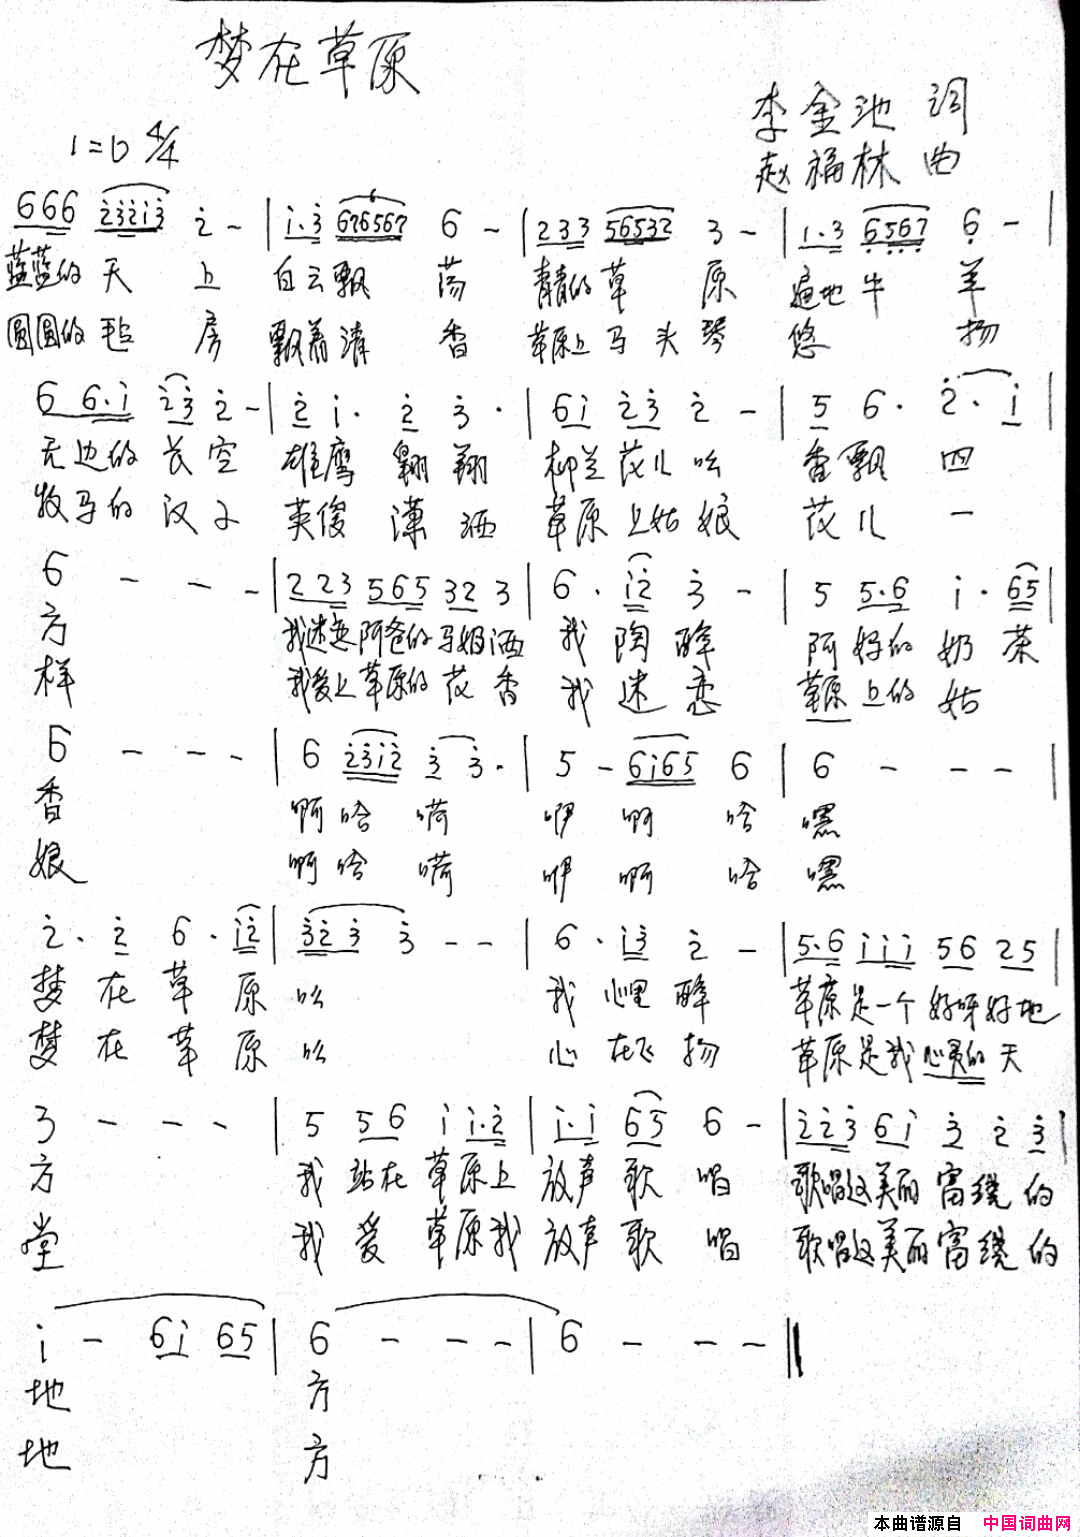 梦在草原
李金池 词
1=D 4/4
赵福林 曲
666 2̇3̇2̇1̇3̇ 2̇ - | 1̇·3̇ 676567 6 - | 233 56532 3 - | 1·3 6567 6 - |
蓝蓝的天 上 白云飘 荡 青青的草 原 遍地牛 羊
圆圆的毡 房 飘着清 香 草原上马头琴 悠 扬
6 6·1̇ 2̇3̇ 2̇ - | 2̇ 1̇· 2̇ 3̇· | 61̇ 2̇3̇ 2̇ - | 5 6· 2̇· 1̇ |
无边的长空 雄鹰翱翔 柳兰花儿吆 香飘 四
牧马的汉子 英俊潇洒 草原上姑娘 花儿 一
6 - - - | 2 23 565 32 3 | 6· 1̇2̇ 3̇ - | 5 5·6 1̇· 65 |
方 我迷恋阿爸的马奶酒 我陶醉 阿妈的奶茶
样 我爱上草原的花香 我迷恋 草原上的姑
6 - - - | 6 2̇3̇1̇2̇ 3̇ 3̇· | 5 - 61̇65 6 | 6 - - - |
香 啊哈嗬 咿啊哈 嘿
娘 啊哈嗬 咿啊哈 嘿
2̇· 2̇ 6· 1̇2̇ | 3̇2̇ 3̇ 3̇ - - | 6· 1̇3̇ 2̇ - | 5·6 1̇1̇1̇ 56 25 |
梦在草原 吆 我心里醉 草原是一个好呀好地
梦在草原 吆 心在飞扬 草原是我心灵的天
3 - - - | 5 56 1̇ 1̇·2̇ | 1̇·1̇ 65 6 - | 2̇2̇3̇ 61̇ 3̇ 2̇ 3̇ |
方 我站在草原上 放声歌唱 歌唱这美丽富绕的
堂 我爱草原我 放声歌唱 歌唱这美丽富绕的
1̇ - 61̇ 65 | 6 - - - | 6 - - - ‖
地 方
地 方
本曲谱源自 中国词曲网